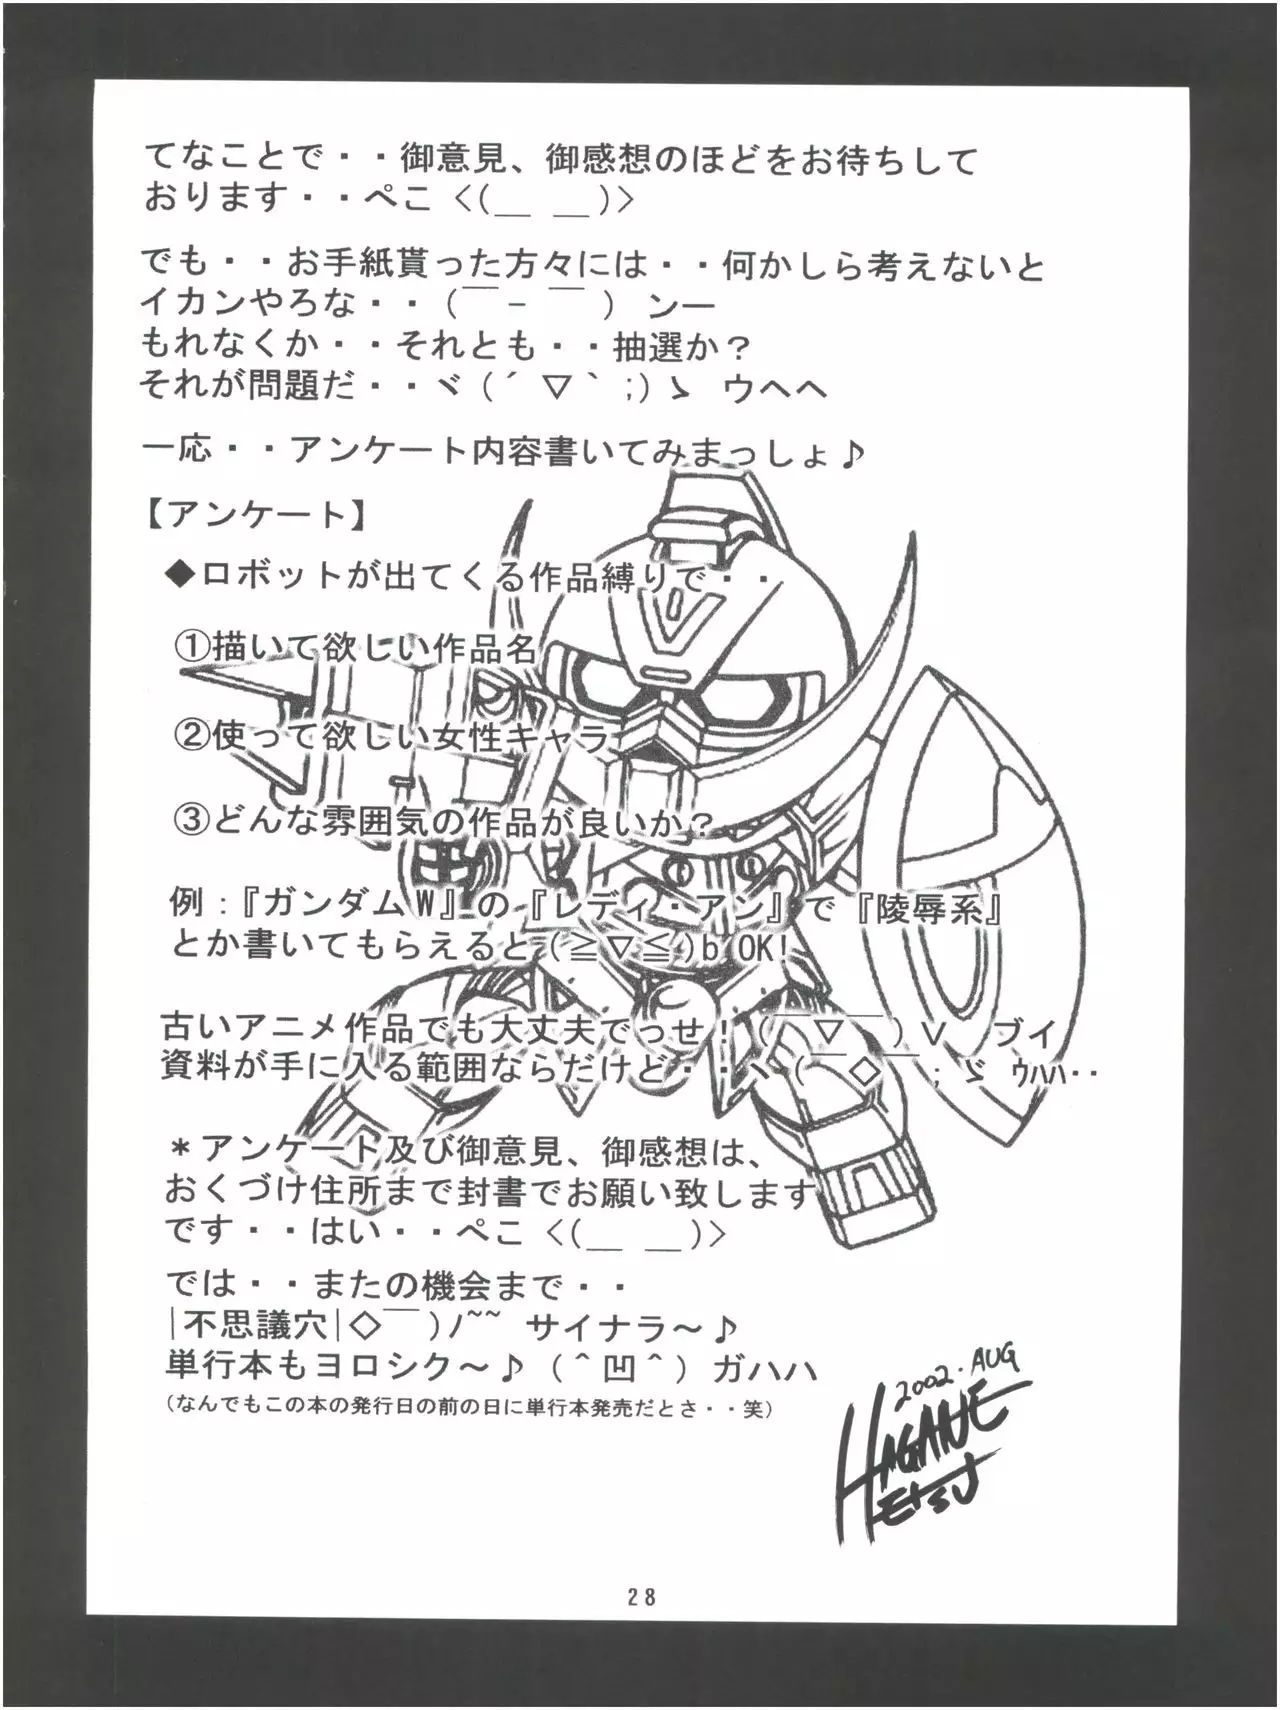 てなことで・・御意見、御感想のほどをお待ちして
おります・・ぺこ <(__ __)>
でも・・お手紙貰った方々には・・何かしら考えないと
イカンやろな・・（￣- ￣）ンー
もれなくか・・それとも・・抽選か？
それが問題だ・・ヾ(´▽｀;)ゝ ウヘヘ
一応・・アンケート内容書いてみまっしょ♪
【アンケート】
◆ロボットが出てくる作品縛りで・・
①描いて欲しい作品名
②使って欲しい女性キャラ
③どんな雰囲気の作品が良いか？
例：『ガンダムW』の『レディ・アン』で『陵辱系』
とか書いてもらえると(≧▽≦)b OK!
古いアニメ作品でも大丈夫でっせ！(￣▽￣)Ｖ ブイ
資料が手に入る範囲ならだけど・・ヽ(￣◇￣;ゞ ｳﾊﾊ・・
＊アンケート及び御意見、御感想は、
おくづけ住所まで封書でお願い致します
です・・はい・・ぺこ <(__ __)>
では・・またの機会まで・・
|不思議穴|◇￣)ﾉ~~ サイナラ～♪
単行本もヨロシク～♪（＾凹＾）ガハハ
（なんでもこの本の発行日の前の日に単行本発売だとさ・・笑）
2002.AUG
HAGANE
TETSU
28